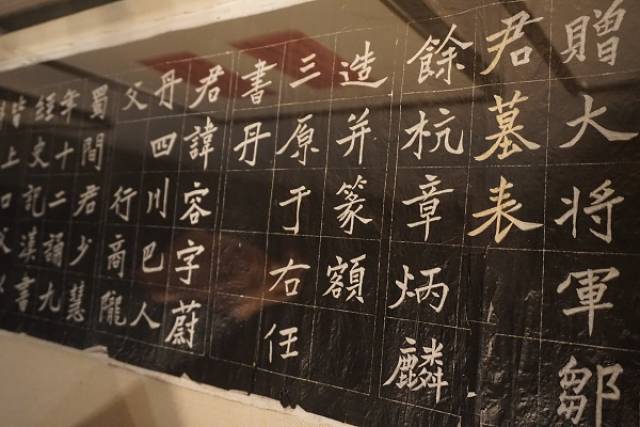 贈大将軍鄒
君墓表
餘杭章炳麟
造并篆額
三原于右任
書丹
君諱容字蔚
丹四川巴人
父行商隴
蜀間君少慧
年十二誦九
經史記漢書
皆上口父以